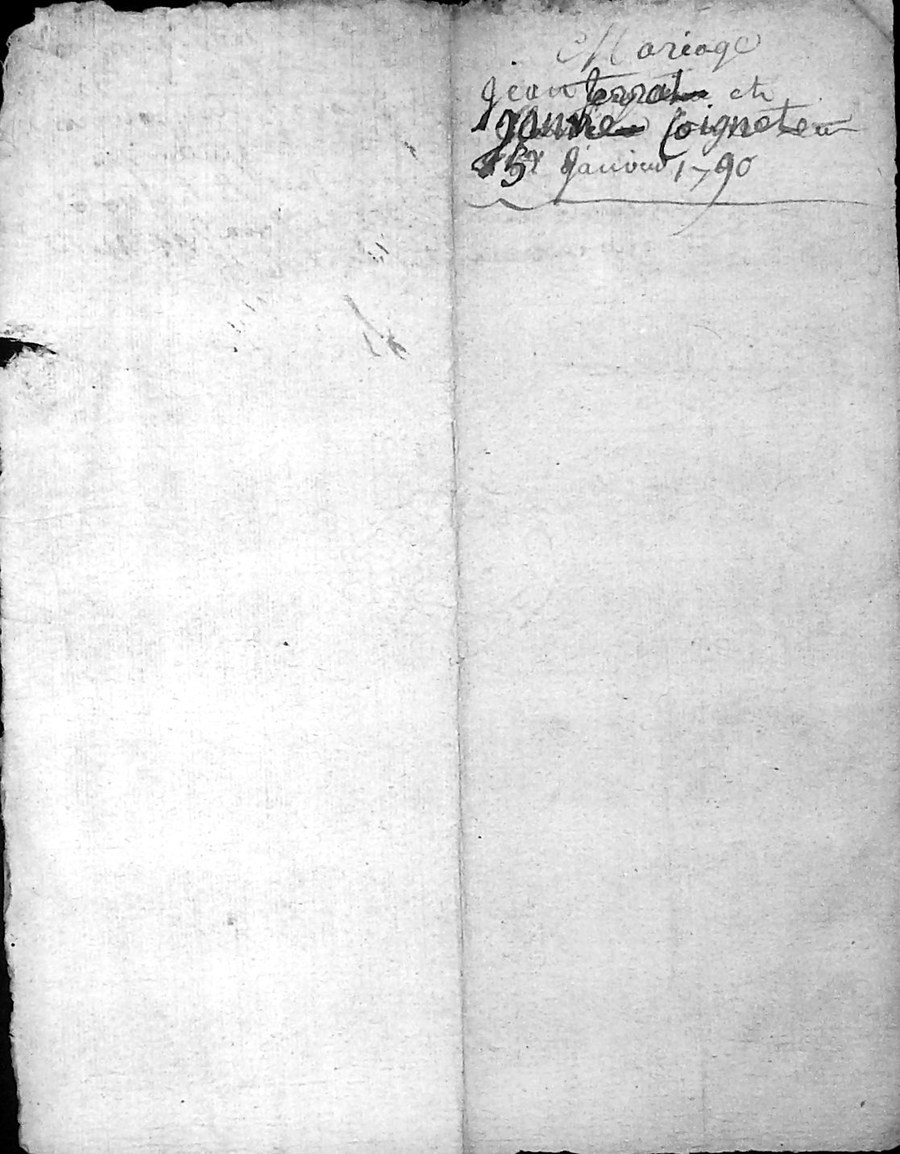 Mariage
Jean terrat et
Coignet
Janvier 1790